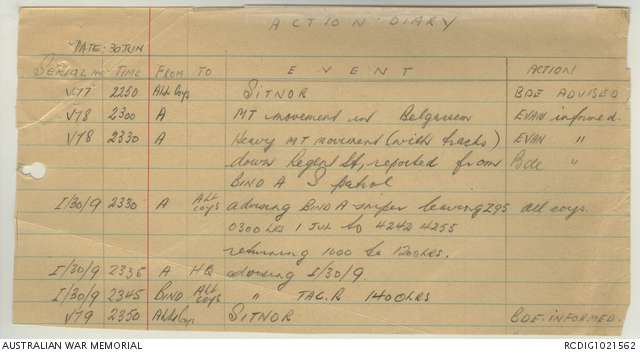 ACTION DIARY
DATE: 30 JUN
SERIAL No TIME FROM TO EVENT ACTION
V77 2250 All Coys SITNOR BDE ADVISED
V78 2300 A MT movement in Belgrave EVAN informed
V78 2330 A Heavy MT movement (with tracks) EVAN "
down Regent St, reported from Bde "
BIND A S patrol
I/30/9 2330 A ALL coys advising BIND A sniper leaving I95 all coys.
0300 HRS 1 JUL to 4242 4255
returning 1000 to 1200 HRS.
I/30/9 2335 A HQ advising I/30/9.
I/30/9 2345 BIND ALL coys " TAC.R 1400 HRS
V79 2350 All Coys SITNOR BDE INFORMED.
AUSTRALIAN WAR MEMORIAL RCDIG1021562